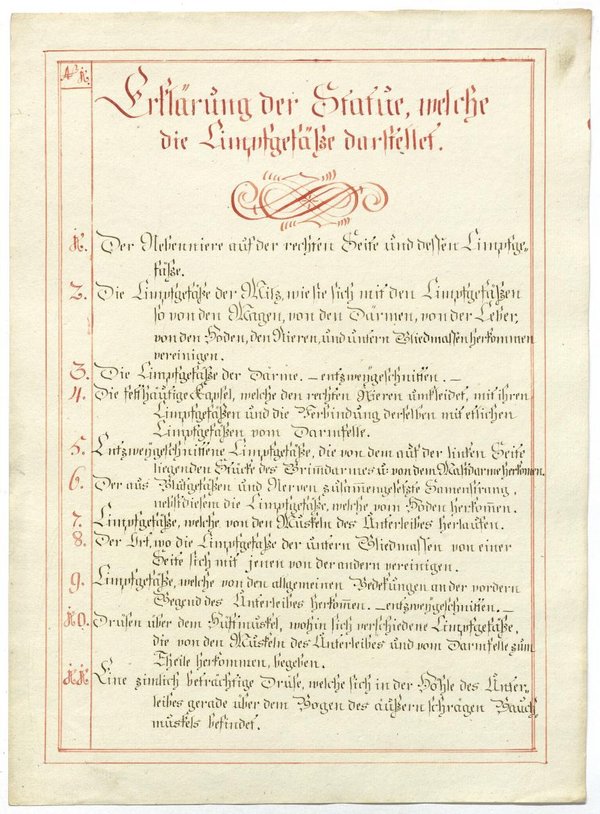 Erklärung der Statue, welche
die Limpfgefäße darstellet.
1. Der Nebenniere auf der rechten Seite und dessen Limpfge-
fäße.
2. Die Limpfgefäße der Milz, wie sie sich mit den Limpfgefäßen
so von den Magen, von den Därmen, von der Leber,
von den Hoden, den Nieren, und untern Gliedmassen herkommen
vereinigen.
3. Die Limpfgefäße der Därme. — entzweygeschnitten. —
4. Die fetthäutige Kapsel, welche den rechten Nieren umkleidet, mit ihren
Limpfgefäßen und die Verbindung derselben mit etlichen
Limpfgefäßen vom Darmfelle.
5. Entzweygeschnittene Limpfgefäße, die von dem auf der linken Seite
liegenden Stücke des Grimdarmes u: von dem Mastdarme herkomen.
6. Der aus Blutgefäßen und Nerven zusammengesetzte Samenstrang,
nebst diesem die Limpfgefäße, welche vom Hoden herkomen.
7. Limpfgefäße, welche von den Muskeln des Unterleibes herlaufen.
8. Der Ort, wo die Limpfgefäße der untern Gliedmassen von einer
Seite sich mit jenen von der andern vereinigen.
9. Limpfgefäße, welche von den allgemeinen Bedekungen an der vordern
Gegend des Unterleibes herkom̄en. — entzweygeschnitten. —
10. Drüsen über dem Hüftmuskel, wohin sich verschiedene Limpfgefäße,
die von den Muskeln des Unterleibes und vom Darmfelle zum
Theile herkommen, begeben.
11. Eine zimlich beträchtige Drüse, welche sich in der Höhle des Unter-
leibes gerade über dem Bogen des äußern schrägen Bauch
muskels befindet.